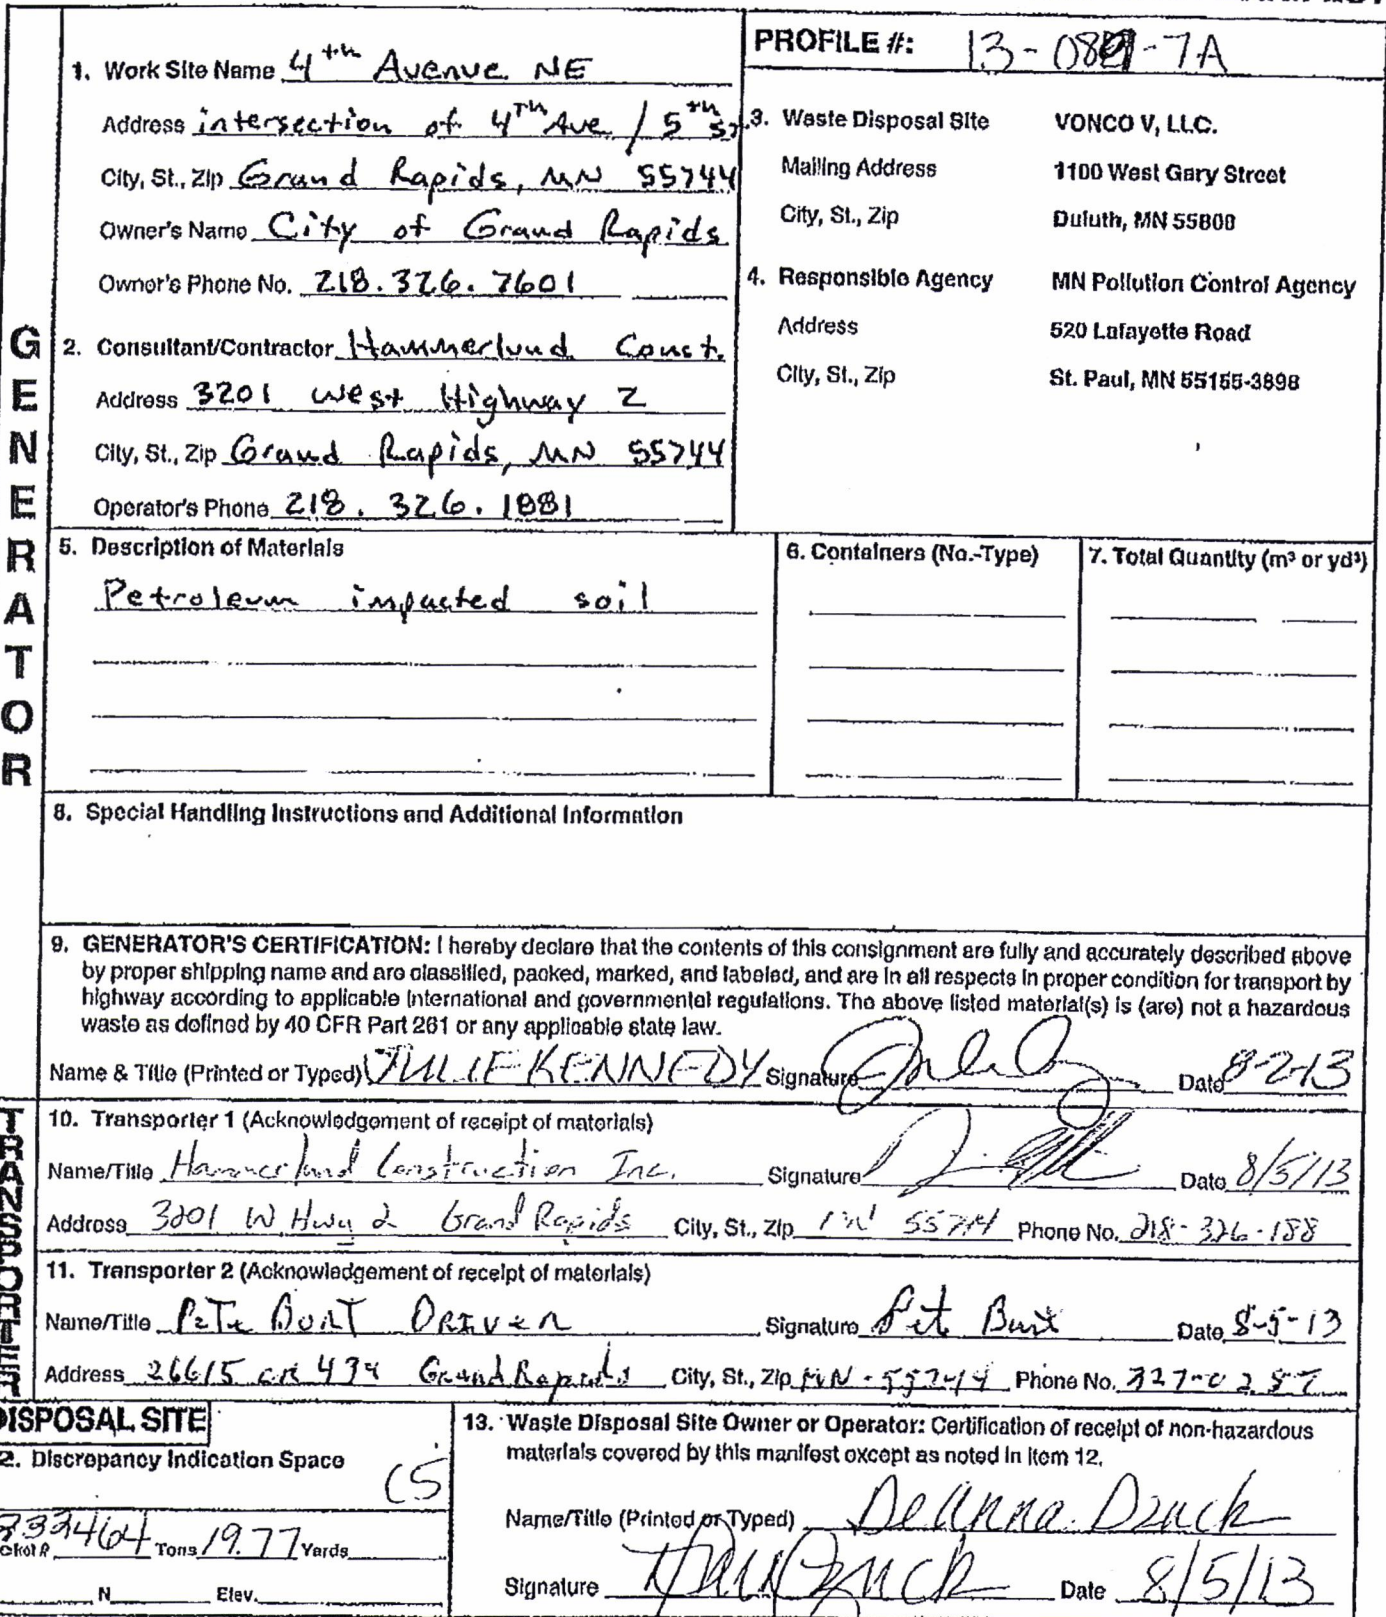 PROFILE #: 13-08
1. Work Site Name 4th Avenue NE
Address intersection of 4Th Ave / 5th St.
City, St., Zip Grand Rapids, MN 55744
Owner's Name City of Grand Rapids
Owner's Phone No. 218.326.7601
2. Consultant/Contractor Hammerlund Const.
Address 3201 West Highway 2
City, St., Zip Grand Rapids, MN 55744
Operator's Phone 218. 326. 1881
3. Waste Disposal Site VONCO V, LLC.
Mailing Address 1100 West Gary Street
City, St., Zip Duluth, MN 55808
4. Responsible Agency MN Pollution Control Agency
Address 520 Lafayette Road
City, St., Zip St. Paul, MN 55155-3898
GENERATOR
5. Description of Materials
Petroleum impacted soil
6. Containers (No.-Type)
7. Total Quantity (m³ or yd³)
8. Special Handling Instructions and Additional Information
9. GENERATOR'S CERTIFICATION: I hereby declare that the contents of this consignment are fully and accurately described above
by proper shipping name and are classified, packed, marked, and labeled, and are in all respects in proper condition for transport by
highway according to applicable international and governmental regulations. The above listed material(s) is (are) not a hazardous
waste as defined by 40 CFR Part 261 or any applicable state law.
Name & Title (Printed or Typed) JULIE KENNEDY Signature Date 8-2-13
TRANSPORTER
10. Transporter 1 (Acknowledgement of receipt of materials)
Name/Title Hammerlund Construction Inc. Signature Date 8/5/13
Address 3201 W Hwy 2 Grand Rapids City, St., Zip MN 55744 Phone No. 218-326-188
11. Transporter 2 (Acknowledgement of receipt of materials)
Name/Title Pete Burt Driver Signature Pete Burt Date 8-5-13
Address 26615 CR 434 Grand Rapids City, St., Zip MN-55744 Phone No. 327-0287
DISPOSAL SITE
2. Discrepancy Indication Space
(5
333464 Tons 19.77 Yards
N Elev.
13. Waste Disposal Site Owner or Operator: Certification of receipt of non-hazardous
materials covered by this manifest except as noted in Item 12.
Name/Title (Printed or Typed) DeAnna Dzuck
Signature Date 8/5/13